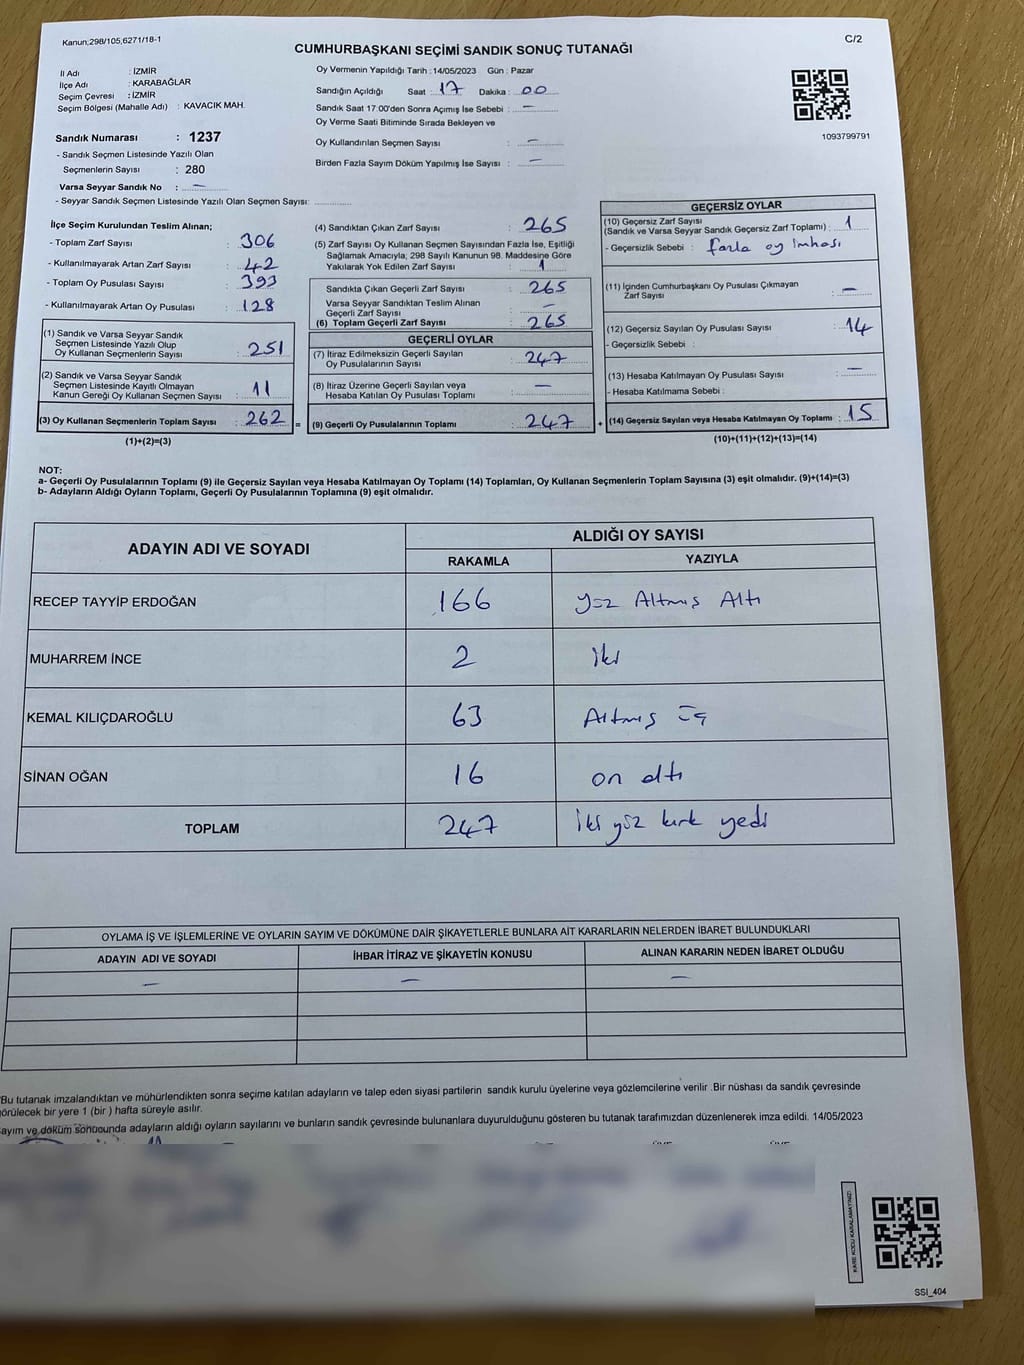 Kanun;298/105,6271/18-1
C/2
CUMHURBAŞKANI SEÇİMİ SANDIK SONUÇ TUTANAĞI
İl Adı : İZMİR
İlçe Adı : KARABAĞLAR
Seçim Çevresi : İZMİR
Seçim Bölgesi (Mahalle Adı) : KAVACIK MAH.
Sandık Numarası : 1237
- Sandık Seçmen Listesinde Yazılı Olan
Seçmenlerin Sayısı : 280
Varsa Seyyar Sandık No : —
- Seyyar Sandık Seçmen Listesinde Yazılı Olan Seçmen Sayısı:
Oy Vermenin Yapıldığı Tarih :14/05/2023 Gün : Pazar
Sandığın Açıldığı Saat : 17 Dakika : 00
Sandık Saat 17:00'den Sonra Açımış İse Sebebi : —
Oy Verme Saati Bitiminde Sırada Bekleyen ve
Oy Kullandırılan Seçmen Sayısı : —
Birden Fazla Sayım Döküm Yapılmış İse Sayısı : —
1093799791
İlçe Seçim Kurulundan Teslim Alınan;
- Toplam Zarf Sayısı : 306
- Kullanılmayarak Artan Zarf Sayısı : 42
- Toplam Oy Pusulası Sayısı : 393
- Kullanılmayarak Artan Oy Pusulası : 128
(1) Sandık ve Varsa Seyyar Sandık
Seçmen Listesinde Yazılı Olup
Oy Kullanan Seçmenlerin Sayısı : 251
(2) Sandık ve Varsa Seyyar Sandık
Seçmen Listesinde Kayıtlı Olmayan
Kanun Gereği Oy Kullanan Seçmen Sayısı : 11
(3) Oy Kullanan Seçmenlerin Toplam Sayısı : 262
(1)+(2)=(3)
(4) Sandıktan Çıkan Zarf Sayısı : 265
(5) Zarf Sayısı Oy Kullanan Seçmen Sayısından Fazla İse, Eşitliği
Sağlamak Amacıyla; 298 Sayılı Kanunun 98. Maddesine Göre
Yakılarak Yok Edilen Zarf Sayısı : 1
Sandıkta Çıkan Geçerli Zarf Sayısı : 265
Varsa Seyyar Sandıktan Teslim Alınan
Geçerli Zarf Sayısı : —
(6) Toplam Geçerli Zarf Sayısı : 265
GEÇERLİ OYLAR
(7) İtiraz Edilmeksizin Geçerli Sayılan
Oy Pusulalarının Sayısı : 247
(8) İtiraz Üzerine Geçerli Sayılan veya
Hesaba Katılan Oy Pusulası Toplamı : —
= (9) Geçerli Oy Pusulalarının Toplamı : 247 +
GEÇERSİZ OYLAR
(10) Geçersiz Zarf Sayısı
(Sandık ve Varsa Seyyar Sandık Geçersiz Zarf Toplamı) : 1
- Geçersizlik Sebebi : fazla oy imhası
(11) İçinden Cumhurbaşkanı Oy Pusulası Çıkmayan
Zarf Sayısı : —
(12) Geçersiz Sayılan Oy Pusulası Sayısı : 14
- Geçersizlik Sebebi :
(13) Hesaba Katılmayan Oy Pusulası Sayısı : —
- Hesaba Katılmama Sebebi :
(14) Geçersiz Sayılan veya Hesaba Katılmayan Oy Toplamı : 15
(10)+(11)+(12)+(13)=(14)
NOT:
a- Geçerli Oy Pusulalarının Toplamı (9) ile Geçersiz Sayılan veya Hesaba Katılmayan Oy Toplamı (14) Toplamları, Oy Kullanan Seçmenlerin Toplam Sayısına (3) eşit olmalıdır. (9)+(14)=(3)
b- Adayların Aldığı Oyların Toplamı, Geçerli Oy Pusulalarının Toplamına (9) eşit olmalıdır.
ADAYIN ADI VE SOYADI
ALDIĞI OY SAYISI
RAKAMLA YAZIYLA
RECEP TAYYİP ERDOĞAN 166 yüz Altmış Altı
MUHARREM İNCE 2 iki
KEMAL KILIÇDAROĞLU 63 Altmış üç
SİNAN OĞAN 16 on altı
TOPLAM 247 iki yüz kırk yedi
OYLAMA İŞ VE İŞLEMLERİNE VE OYLARIN SAYIM VE DÖKÜMÜNE DAİR ŞİKAYETLERLE BUNLARA AİT KARARLARIN NELERDEN İBARET BULUNDUKLARI
ADAYIN ADI VE SOYADI İHBAR İTİRAZ VE ŞİKAYETİN KONUSU ALINAN KARARIN NEDEN İBARET OLDUĞU
— — —
Bu tutanak imzalandıktan ve mühürlendikten sonra seçime katılan adayların ve talep eden siyasi partilerin sandık kurulu üyelerine veya gözlemcilerine verilir .Bir nüshası da sandık çevresinde
görülecek bir yere 1 (bir ) hafta süreyle asılır.
ayım ve döküm sonucunda adayların aldığı oyların sayılarını ve bunların sandık çevresinde bulunanlara duyurulduğunu gösteren bu tutanak tarafımızdan düzenlenerek imza edildi. 14/05/2023
KARE KODU KARALAMAYINIZ!
SSI_404